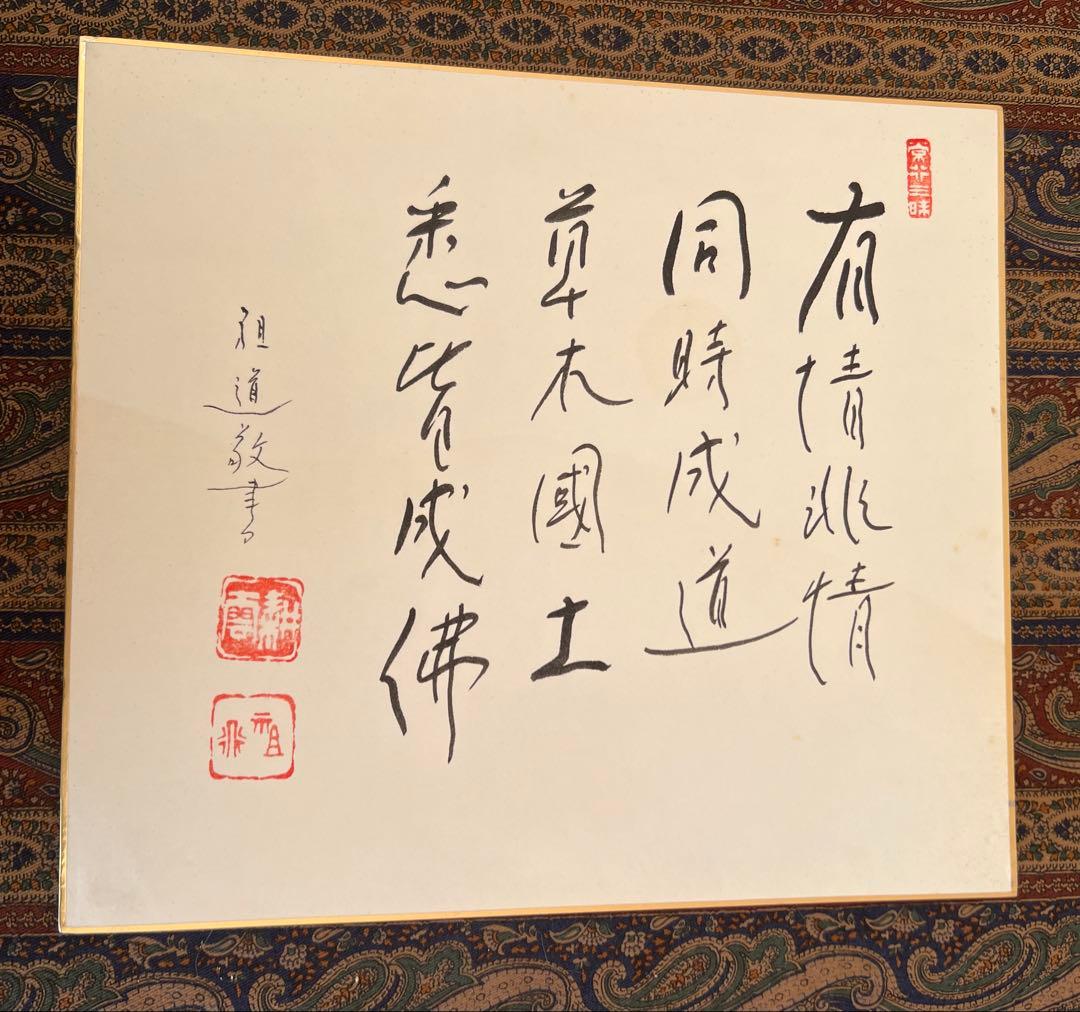 有情非情
同時成道
草木國土
悉皆成佛
祖道敬書